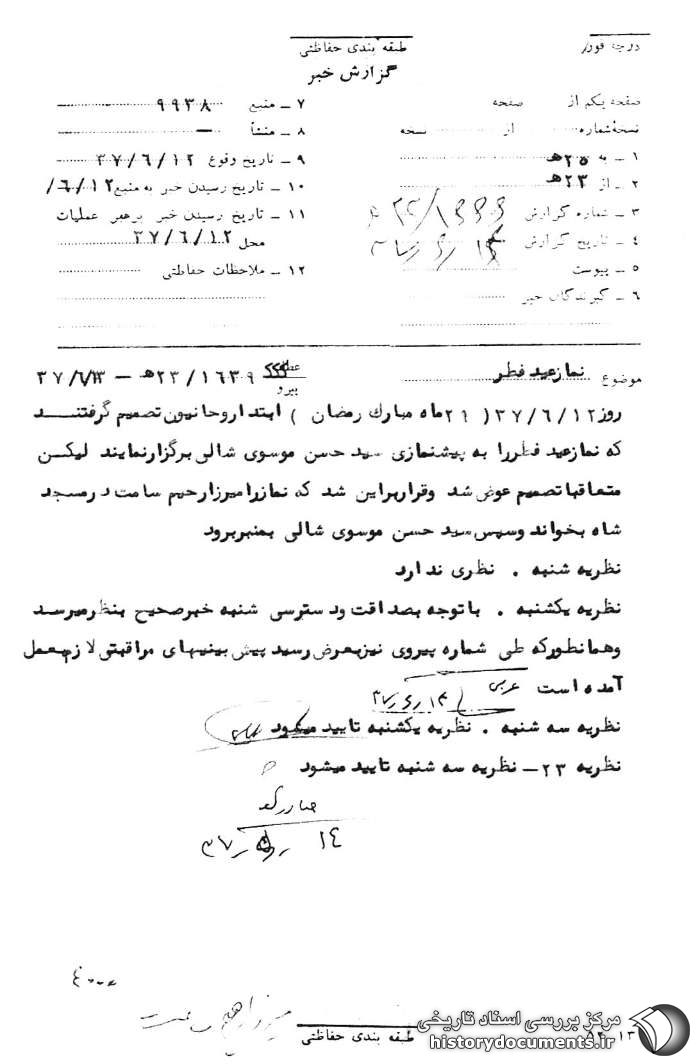 درجه فوریت
طبقه بندی حفاظتی
گزارش خبر
صفحه یکم از صفحه
نسخهٔ شماره از نسخه
۱ ـ به ۲۵ه‍
۲ ـ از ۲۳ه‍
۳ ـ شماره گزارش
۴ ـ تاریخ گزارش
۵ ـ پیوست
۶ ـ گیرندگان خبر
۷ ـ منبع ۹۹۳۸
۸ ـ منشأ ـ
۹ ـ تاریخ وقوع ۳۷/۶/۱۲
۱۰ ـ تاریخ رسیدن خبر به منبع ۶/۱۲/
۱۱ ـ تاریخ رسیدن خبر برهبر عملیات
محل ۳۷/۶/۱۲
۱۲ ـ ملاحظات حفاظتی
موضوع نماز عید فطر
پیرو ۲۳/۱۶۳۹ه‍ ـ ۳۷/۶/۱۳
روز ۳۷/۶/۱۲ (۲۹ماه مبارک رمضان ) ابتدا روحانیون تصمیم گرفتند
که نماز عید فطر را به پیشنمازی سید حسن موسوی شالی برگزار نمایند لیکن
متعاقبا تصمیم عوض شد وقرار براین شد که نماز را میرزا رحیم سامت در مسجد
شاه بخواند وسپس سید حسن موسوی شالی بمنبر برود
نظریه شنبه . نظری ندارد
نظریه یکشنبه . با توجه بصداقت ودسترسی شنبه خبر صحیح بنظر میرسد
وهمانطور که طی شماره پیروی نیز بعرض رسید پیش بینیهای مراقبتی لازم بعمل
آمده است
نظریه سه شنبه . نظریه یکشنبه تایید میشود
نظریه ۲۳ ـ نظریه سه شنبه تایید میشود
طبقه بندی حفاظتی
مرکز بررسی اسناد تاریخی
historydocuments.ir